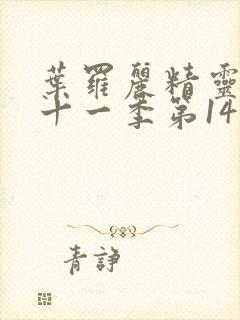 葉羅麗精靈
十一季第14
青諍